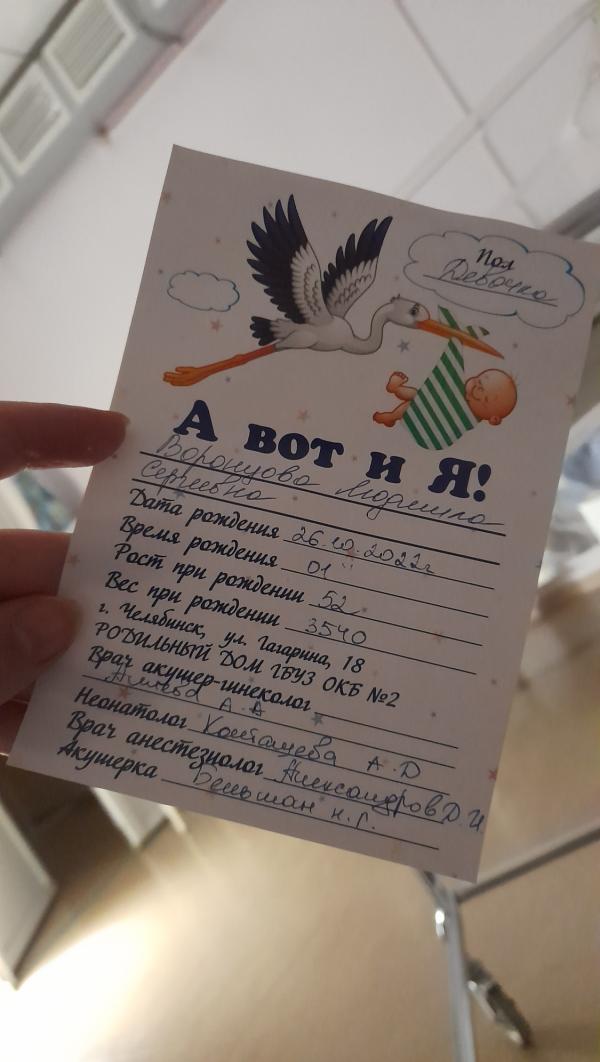 Пол
Девочка
А вот и Я!
Воронцова Людмила
Сергеевна
Дата рождения 26.10.2022г
Время рождения 01
Рост при рождении 52
Вес при рождении 3540
г. Челябинск, ул. Гагарина, 18
РОДИЛЬНЫЙ ДОМ ГБУЗ ОКБ №2
Врач акушер-гинеколог
А. А
Неонатолог А. Д
Врач анестезиолог Александров Д. И
Акушерка Бельман Н. Г.